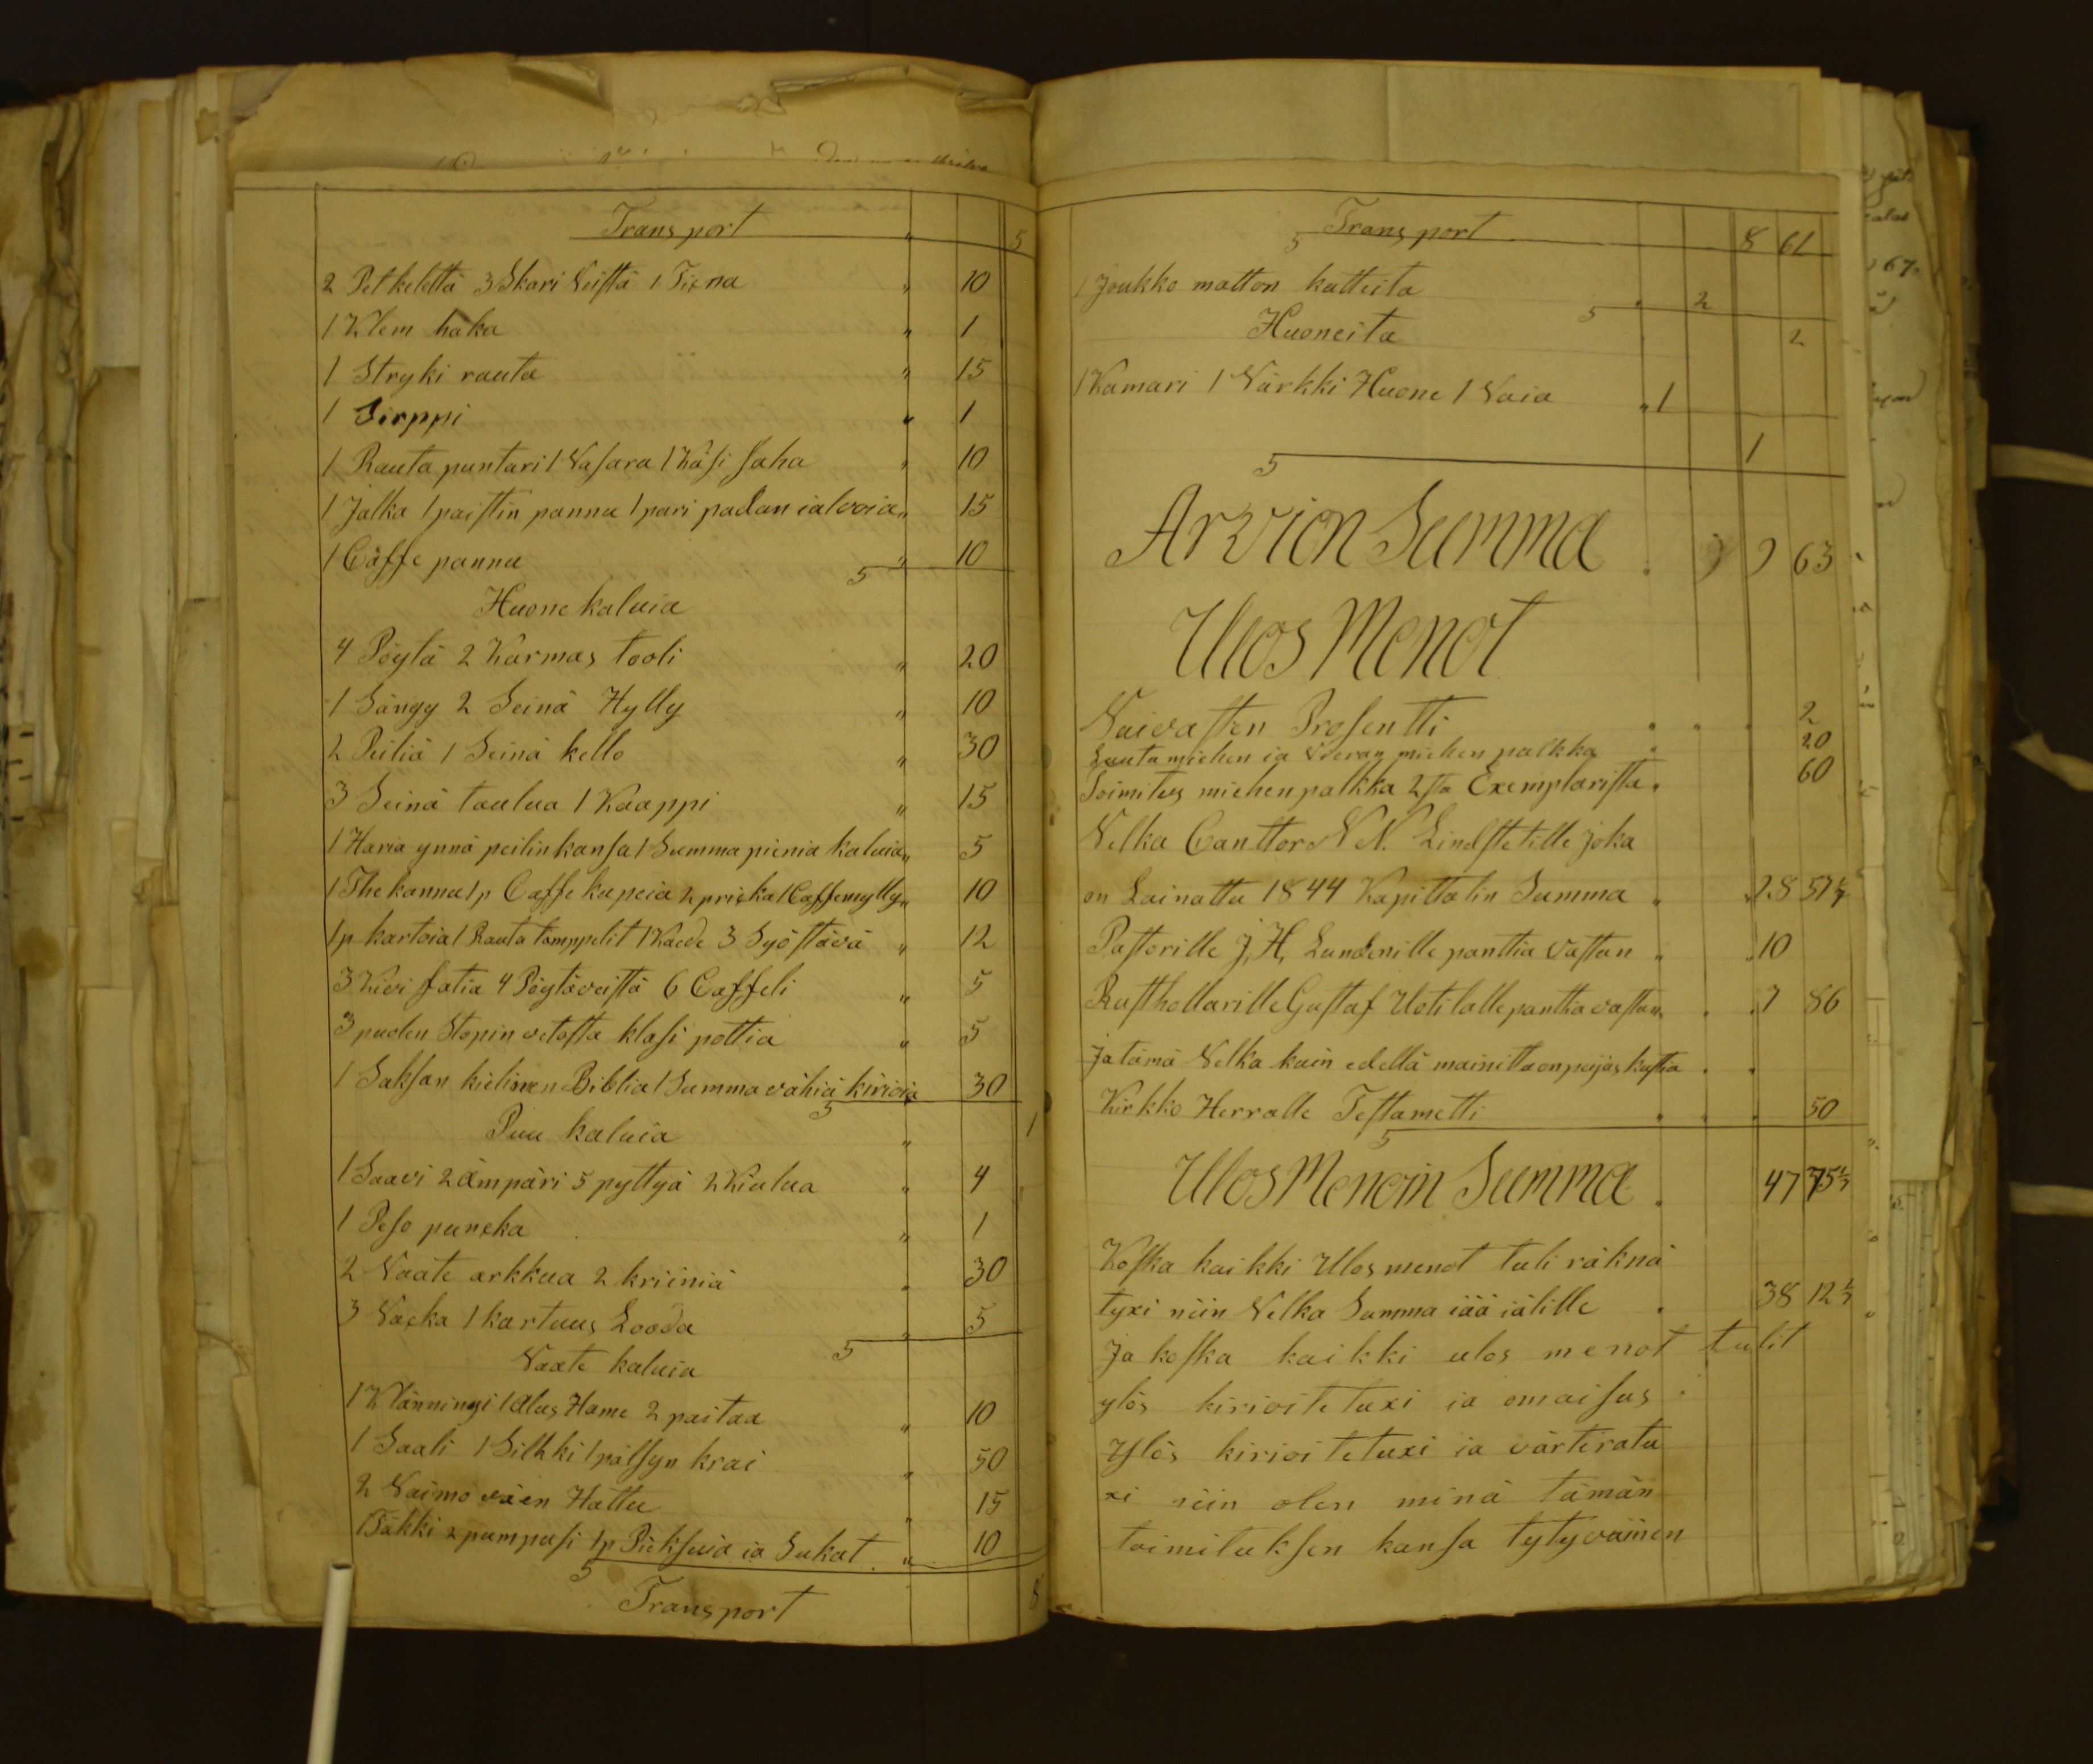 Transport " 5
2 Petkelettä 3 Skari Veistä 1 Tiena " 10
1 Klem haka " 1
1 Stryki rauta " 15
1 Sirppi " 1
1 Rauta puntari 1 Vasara 1 Käsi saha " 10
1 Jalka 1 paistin pannu 1 pari padan ialvoia " 15
1 Cäffe pannu " 10
5
Huone kaluia
4 Pöytä 2 Karmas tooli " 20
1 Sängy 2 Seinä Hylly " 10
2 Peiliä 1 Seinä kello " 30
3 Seinä taulua 1 Kaappi " 15
1 Haria ynnä peilin kansa 1 Summa pieniä kaluia " 5
1 The kannu 1 p Caffe kupeia 2 pricka 1 Caffemylly " 10
1 p kartoia 1 Rauta tämppelit 1 3 Syöttävä " 12
3 Kivi fatia 4 Pöytäveistä 6 Caffeli " 5
3 puolen Stopin vetosta klasi pottia " 5
1 Saksan kielinen Biblia 1 Summa vähiä kirioia 30
5
Puu kaluia " 1
1 Saavi 2 ämpäri 5 pyttyä 2 Kiulua " 4
1 Peso puncka " 1
2 Vaate arkkua 2 kriiniä " 30
3 Vacka 1 kartuus Looda " 5
5
Vaate kaluia
1 Klänningi 1 Alus Hame 2 paitaa " 10
1 Saali 1 Silkki 1 pälsyn krai " 50
2 Vaimo väen Hattu " 15
1 Täkki 2 pumpusi 1 p Pieksuia ia Sukat " 10
5
Transport 8
Transport 8 61
5
1 Joukko matton katteita " 2
5
Huoneita 2
1 Kamari 1 Värkki Huone 1 Vaia " 1
1
5
Arvion Summa . 9 63
Ulos Menot
Vaivasten Prosentti . . . 2
Lauta miehen ia Vieran miehen palkka . 20
Toimitus miehen palkka 2sta Exemplarista . 60
Velka Canttor N N. Lindstetille joka
on Lainattu 1844 Kapittalin Summa " 28 57 1/7
Pastorille J, H, Lundenille panttia vastan " 10
Rusthollarille Gustaf Uotilalle panttia vastan . 7 86
Ja tämä Velka kuin edellä mainittu on peijas kustia . .
Kirkko Herralle Testametti . . . 50
5
Ulos Menoin Summa . 47 75 1/7
Koska kaikki Ulosmenot tuli räknä
tyxi niin Velka Summa iää iälille . 38 12 1/7
Ja koska kaikki ulos menot tulit
ylös kirioitetuxi ia omaisus
Ylös kirioitetuxi ia värtiratu
xi niin olen minä tämän
toimituksen kansa tytyväinen